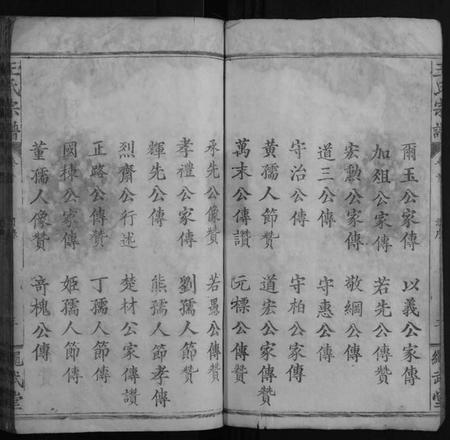 王氏宗譜
爾玉公家傳 以義公家傳
加爼公家傳 若先公傳贊
宏勳公家傳 敬綱公傳
道三公傳 守惠公傳
守治公傳 守柏公家傳
黃孺人節贊 道宏公家傳贊
萬末公傳讚 元標公傳贊
繩武堂
王氏宗譜
承先公像贊 若愚公傳贊
孝禮公家傳 劉孺人節贊
輝先公傳 熊孺人節孝傳
烈齋公行述 楚材公家傳讃
正略公傳贊 丁孺人節傳
國棟公家傳 姬孺人節傳
董孺人像贊 奇槐公傳
繩武堂